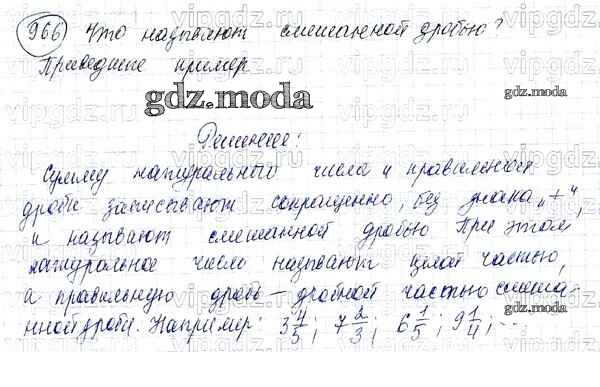 966 Что называют смешанной дробью?
Приведите пример
gdz.moda
gdz.moda
Решение:
Сумму натурального числа и правильной
дроби записывают сокращенно, без знака „+“,
и называют смешанной дробью При этом
натуральное число называют целой частью,
а правильную дробь – дробной частью смеша-
нной дроби. Например: 3 4/5; 7 2/3; 6 1/5; 9 1/4; ...
gdz.moda